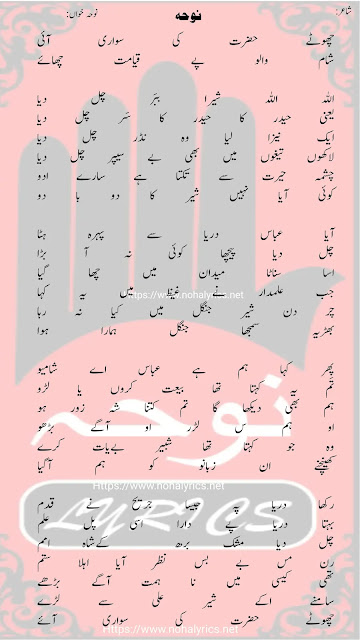 شاعر:
نوحہ
نوحہ خواں:
چھوٹے حضرت کی سواری آئی
شام والو پے قیامت چھائے
اللہ اللہ شیرا ببر چل دیا
یعنی حیدر کا حیدر کا سر چل دیا
ایک نیزا لیا وہ نڈر چل دیا
لاکھوں تیغوں میں بھی بے سپر چل دیا
چشمہ حیرت سے تکتا ہے سارے ادو
کوئی آیا نہیں شیر کا دو با دو
آیا عباس دریا سے پہرہ ہٹا
چل دیا پیچھا کوئی نہ آ بڑا
اسا سناٹا میدان میں چھا گیا
https://www.nohalyrics.net
جب علمدار نے غیظ میں یہ کہا
چر دن شیر جنگل میں کیا نہ رہا
بھڑیہ سمجھا جنگل ہمارا ہوا
پھر کہا ہم ہے عباس اے شامیو
تم یہ کہتا تھا بیعت کروں یا لڑو
ہم بھی دیکھا گا تم کتنا شہ زور ہو
او ہم س لڑر او آگے بڑھو
وہ جو کہتا تھا شبیر بےیات کرے
کھینچنے ان زبانو کو ہم آگیا
نوحہ
Https://www.nohalyrics.net
رکھا دریا پے جیسا جریح نے قدم
بہتا دریا پے دارا اسی پل علم
LYRICS
چل دیا مشک بڑھ کےشاہ امم
رن مں بے بس نظر آیا اہلا ستم
تھی کیسی میں نا ہمت آگے بڑھے
سامنے اکے شیر علی سے لڑے
چھوٹے حضرت کی سواری آئے
Https://www.nohalyrics.net